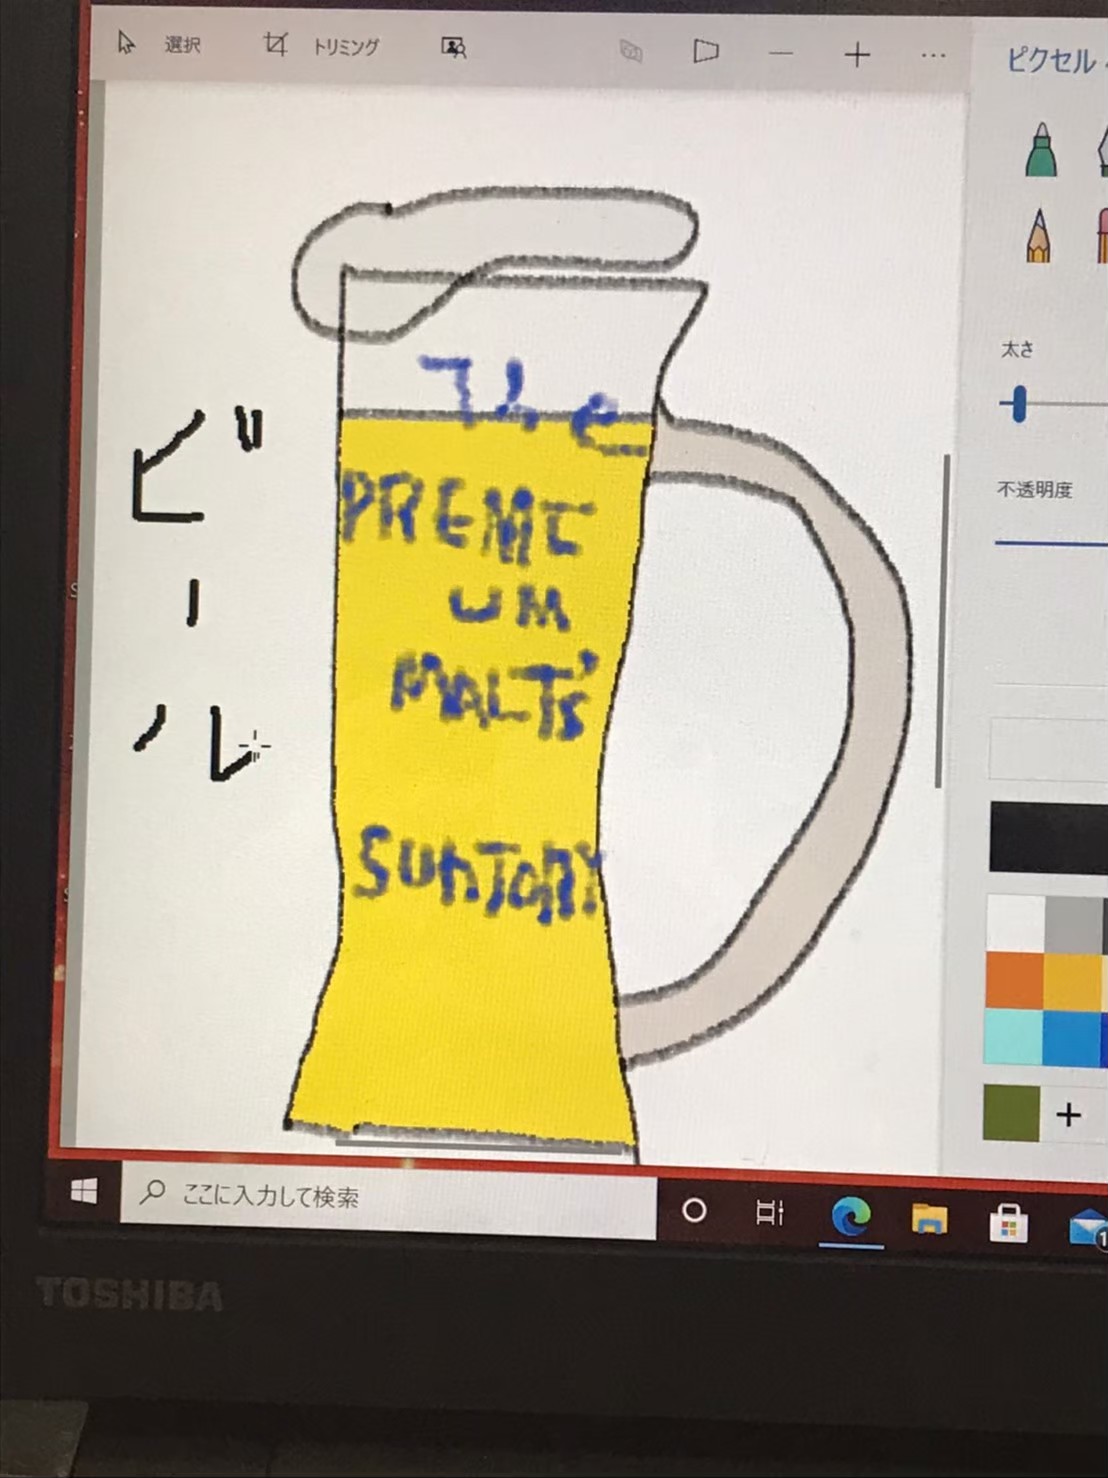 選択 トリミング
ピクセル
太さ
不透明度
ビール
The
PREMI
UM
MALT'S
SUNTORY
ここに入力して検索
1
TOSHIBA